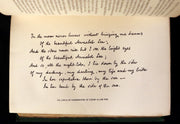 For the moon never beams without bringing me dreams
Of the beautiful Annabel Lee;
And the stars never rise but I see the bright eyes
Of the beautiful Annabel Lee;
And so, all the night-tide, I lie down by the side
Of my darling, my darling, my life and my bride
In her sepulchre there by the sea —
In her tomb by the side of the sea.